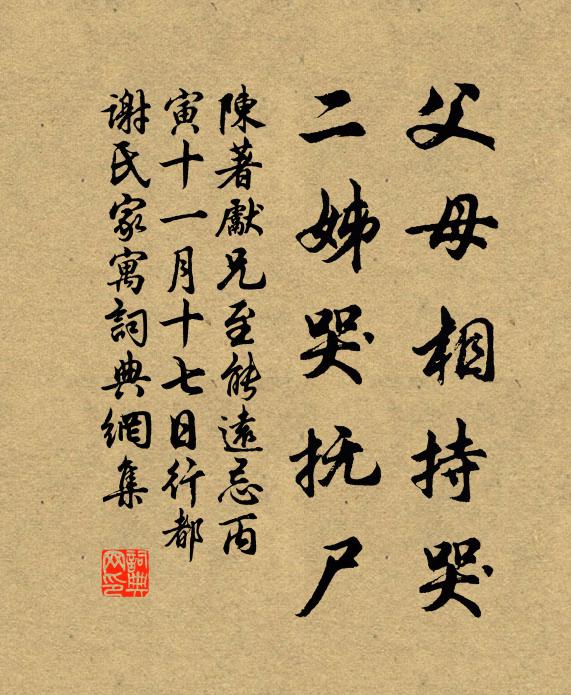 父母相持哭
二姊哭抚尸
陳著獻兄至能遠忌丙
寅十一月十七日行都
謝氏家寓詞典網集
詞典网印